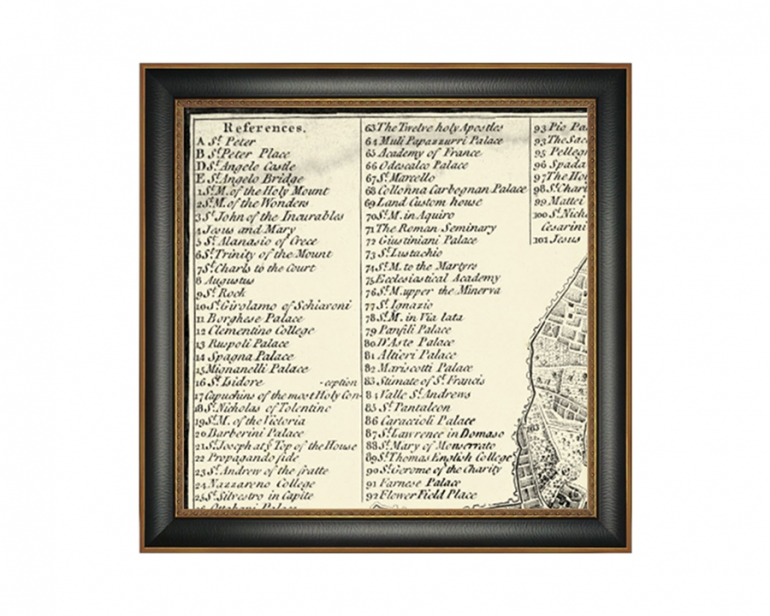 References.
A St. Peter
B St. Peter Place
D St. Angelo Castle
E St. Angelo Bridge
1 St. M. of the Holy Mount
2 St. M. of the Wonders
3 St. John of the Incurables
4 Jesus and Mary
5 St. Atanasio of Crece
6 St. Trinity of the Mount
7 St. Charls to the Court
8 Augustus
9 St. Rock
10 St. Girolamo of Schiaroni
11 Borghese Palace
12 Clementino College
13 Ruspoli Palace
14 Spagna Palace
15 Mignanelli Palace
16 St. Isidore -ception
17 Capuchins of the most Holy Con-
18 St. Nicholas of Tolentino
19 St. M. of the Victoria
20 Barberini Palace
21 St. Joseph at ye Top of the House
22 Propagando fide
23 St. Andrew of the fratte
24 Nazzareno College
25 St. Silvestro in Capite
63 The Twelve holy Apostles
64 Muli Papazzurri Palace
65 Academy of France
66 Odescalco Palace
67 St. Marcello
68 Collonna Carbognan Palace
69 Land Custom house
70 St. M. in Aquiro
71 The Roman Seminary
72 Giustiniani Palace
73 St. Eustachio
74 St. M. to the Martyrs
75 Ecclesiastical Academy
76 St. M. upper the Minerva
77 St. Ignazio
78 St. M. in Via lata
79 Panfili Palace
80 D'Aste Palace
81 Altieri Palace
82 Mariscotti Palace
83 Stimate of St. Francis
84 Valle St. Andrews
85 St. Pantaleon
86 Caraccioli Palace
87 St. Lawrence in Domaso
88 St. Mary of Monserrato
89 St. Thomas English College
90 St. Gerome of the Charity
91 Farnese Palace
92 Flower Field Place
93 Pio Pal
93 The Sac
95 Pelleg
96 Spada
97 The Ho
98 St. Chari
99 Mattei
100 St. Nich
Cesarini
101 Jesus